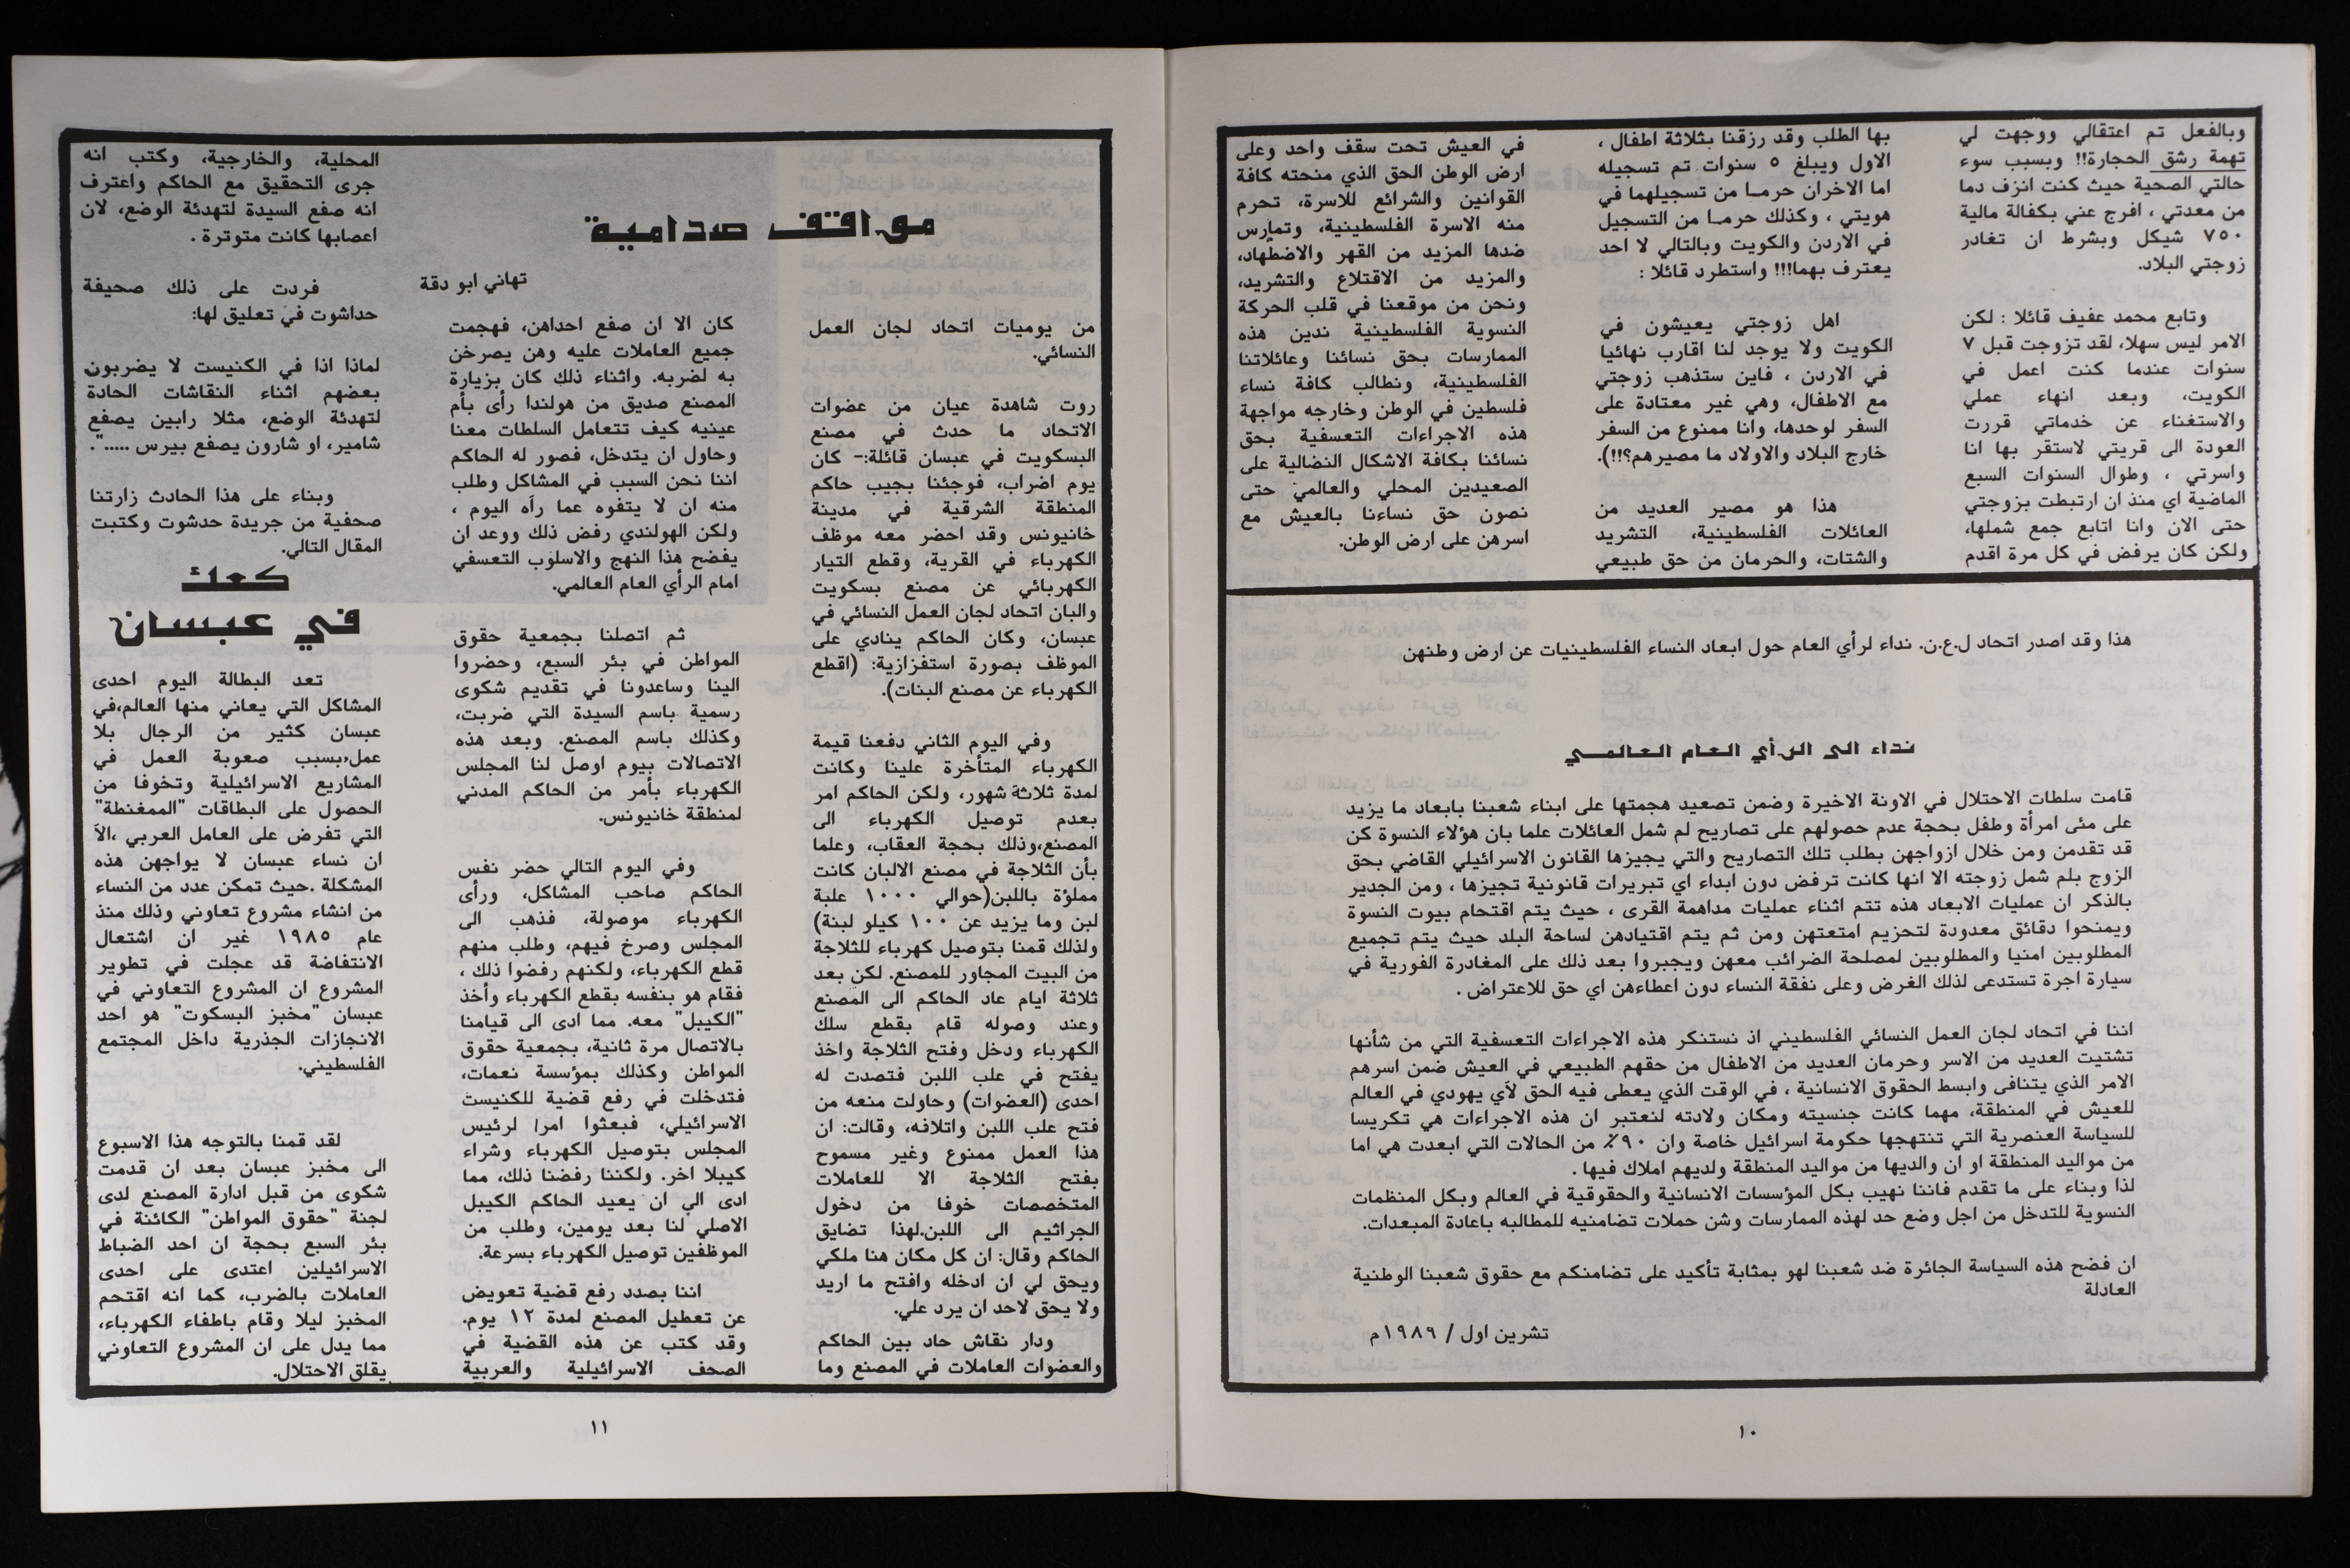 وبالفعل تم اعتقالي ووجهت لي
تهمة رشق الحجارة!! وبسبب سوء
حالتي الصحية حيث كنت انزف دما
من معدتي ، افرج عني بكفالة مالية
٧٥٠ شيكل وبشرط ان تغادر
زوجتي البلاد.
وتابع محمد عفيف قائلا : لكن
الامر ليس سهلا، لقد تزوجت قبل ٧
سنوات عندما كنت اعمل في
الكويت، وبعد انهاء عملي
والاستغناء عن خدماتي قررت
العودة الى قريتي لاستقر بها انا
واسرتي ، وطوال السنوات السبع
الماضية اي منذ ان ارتبطت بزوجتي
حتى الان وانا اتابع جمع شملها،
ولكن كان يرفض في كل مرة اقدم
بها الطلب وقد رزقنا بثلاثة اطفال ،
الاول ويبلغ ٥ سنوات تم تسجيله
اما الاخران حرمــا من تسجيلهما في
هويتي ، وكذلك حرمــا من التسجيل
في الاردن والكويت وبالتالي لا احد
يعترف بهما!!! واستطرد قائلا :
اهل زوجتي يعيشون في
الكويت ولا يوجد لنا اقارب نهائيا
في الاردن ، فاين ستذهب زوجتي
مع الاطفال، وهي غير معتادة على
السفر لوحدها، وانا ممنوع من السفر
خارج البلاد والاولاد ما مصيرهم؟!!).
هذا هو مصير العديد من
العائلات الفلسطينية، التشريد
والشتات، والحرمان من حق طبيعي
في العيش تحت سقف واحد وعلى
ارض الوطن الحق الذي منحته كافة
القوانين والشرائع للاسرة، تحرم
منه الاسرة الفلسطينية، وتمارس
ضدها المزيد من القهر والاضطهاد،
والمزيد من الاقتلاع والتشريد،
ونحن من موقعنا في قلب الحركة
النسوية الفلسطينية ندين هذه
الممارسات بحق نسائنا وعائلاتنا
الفلسطينية، ونطالب كافة نساء
فلسطين في الوطن وخارجه مواجهة
هذه الاجراءات التعسفية بحق
نسائنا بكافة الاشكال النضالية على
الصعيدين المحلي والعالمي حتى
نصون حق نساءنا بالعيش مع
اسرهن على ارض الوطن.
هذا وقد اصدر اتحاد ل.ع.ن. نداء لرأي العام حول ابعاد النساء الفلسطينيات عن ارض وطنهن
نداء الى الرأي العام العالمي
قامت سلطات الاحتلال في الاونة الاخيرة وضمن تصعيد هجمتها على ابناء شعبنا بابعاد ما يزيد
على مئى امرأة وطفل بحجة عدم حصولهم على تصاريح لم شمل العائلات علما بان هؤلاء النسوة كن
قد تقدمن ومن خلال ازواجهن بطلب تلك التصاريح والتي يجيزها القانون الاسرائيلي القاضي بحق
الزوج بلم شمل زوجته الا انها كانت ترفض دون ابداء اي تبريرات قانونية تجيزها ، ومن الجدير
بالذكر ان عمليات الابعاد هذه تتم اثناء عمليات مداهمة القرى ، حيث يتم اقتحام بيوت النسوة
ويمنحوا دقائق معدودة لتحزيم امتعتهن ومن ثم يتم اقتيادهن لساحة البلد حيث يتم تجميع
المطلوبين امنيا والمطلوبين لمصلحة الضرائب معهن ويجبروا بعد ذلك على المغادرة الفورية في
سيارة اجرة تستدعى لذلك الغرض وعلى نفقة النساء دون اعطاءهن اي حق للاعتراض .
اننا في اتحاد لجان العمل النسائي الفلسطيني اذ نستنكر هذه الاجراءات التعسفية التي من شأنها
تشتيت العديد من الاسر وحرمان العديد من الاطفال من حقهم الطبيعي في العيش ضمن اسرهم
الامر الذي يتنافى وابسط الحقوق الانسانية ، في الوقت الذي يعطى فيه الحق لأي يهودي في العالم
للعيش في المنطقة، مهما كانت جنسيته ومكان ولادته لنعتبر ان هذه الاجراءات هي تكريسا
للسياسة العنصرية التي تنتهجها حكومة اسرائيل خاصة وان ٩٠٪ من الحالات التي ابعدت هي اما
من مواليد المنطقة او ان والديها من مواليد المنطقة ولديهم املاك فيها .
لذا وبناء على ما تقدم فاننا نهيب بكل المؤسسات الانسانية والحقوقية في العالم وبكل المنظمات
النسوية للتدخل من اجل وضع حد لهذه الممارسات وشن حملات تضامنيه للمطالبه باعادة المبعدات.
ان فضح هذه السياسة الجائرة ضد شعبنا لهو بمثابة تأكيد على تضامنكم مع حقوق شعبنا الوطنية
العادلة
تشرين اول / ١٩٨٩م
١٠
مواقف صدامية
تهاني ابو دقة
من يوميات اتحاد لجان العمل
النسائي.
روت شاهدة عيان من عضوات
الاتحاد ما حدث في مصنع
البسكويت في عبسان قائلة:- كان
يوم اضراب، فوجئنا بجيب حاكم
المنطقة الشرقية في مدينة
خانيونس وقد احضر معه موظف
الكهرباء في القرية، وقطع التيار
الكهربائي عن مصنع بسكويت
والبان اتحاد لجان العمل النسائي في
عبسان، وكان الحاكم ينادي على
الموظف بصورة استفزازية: (اقطع
الكهرباء عن مصنع البنات).
وفي اليوم الثاني دفعنا قيمة
الكهرباء المتأخرة علينا وكانت
لمدة ثلاثة شهور، ولكن الحاكم امر
بعدم توصيل الكهرباء الى
المصنع،وذلك بحجة العقاب، وعلما
بأن الثلاجة في مصنع الالبان كانت
مملؤة باللبن(حوالي ١٠٠٠ علبة
لبن وما يزيد عن ١٠٠ كيلو لبنة)
ولذلك قمنا بتوصيل كهرباء للثلاجة
من البيت المجاور للمصنع. لكن بعد
ثلاثة ايام عاد الحاكم الى المصنع
وعند وصوله قام بقطع سلك
الكهرباء ودخل وفتح الثلاجة واخذ
يفتح في علب اللبن فتصدت له
احدى (العضوات) وحاولت منعه من
فتح علب اللبن واتلافه، وقالت: ان
هذا العمل ممنوع وغير مسموح
بفتح الثلاجة الا للعاملات
المتخصصات خوفا من دخول
الجراثيم الى اللبن.لهذا تضايق
الحاكم وقال: ان كل مكان هنا ملكي
ويحق لي ان ادخله وافتح ما اريد
ولا يحق لاحد ان يرد علي.
ودار نقاش حاد بين الحاكم
والعضوات العاملات في المصنع وما
كان الا ان صفع احداهن، فهجمت
جميع العاملات عليه وهن يصرخن
به لضربه. واثناء ذلك كان بزيارة
المصنع صديق من هولندا رأى بأم
عينيه كيف تتعامل السلطات معنا
وحاول ان يتدخل، فصور له الحاكم
اننا نحن السبب في المشاكل وطلب
منه ان لا يتفوه عما رآه اليوم ،
ولكن الهولندي رفض ذلك ووعد ان
يفضح هذا النهج والاسلوب التعسفي
امام الرأي العام العالمي.
ثم اتصلنا بجمعية حقوق
المواطن في بئر السبع، وحضروا
الينا وساعدونا في تقديم شكوى
رسمية باسم السيدة التي ضربت،
وكذلك باسم المصنع. وبعد هذه
الاتصالات بيوم اوصل لنا المجلس
الكهرباء بأمر من الحاكم المدني
لمنطقة خانيونس.
وفي اليوم التالي حضر نفس
الحاكم صاحب المشاكل، ورأى
الكهرباء موصولة، فذهب الى
المجلس وصرخ فيهم، وطلب منهم
قطع الكهرباء، ولكنهم رفضوا ذلك ،
فقام هو بنفسه بقطع الكهرباء وأخذ
"الكيبل" معه. مما ادى الى قيامنا
بالاتصال مرة ثانية، بجمعية حقوق
المواطن وكذلك بمؤسسة نعمات،
فتدخلت في رفع قضية للكنيست
الاسرائيلي، فبعثوا امرا لرئيس
المجلس بتوصيل الكهرباء وشراء
كيبلا اخر. ولكننا رفضنا ذلك، مما
ادى الي ان يعيد الحاكم الكيبل
الاصلي لنا بعد يومين، وطلب من
الموظفين توصيل الكهرباء بسرعة.
اننا بصدد رفع قضية تعويض
عن تعطيل المصنع لمدة ١٢ يوم.
وقد كتب عن هذه القضية في
الصحف الاسرائيلية والعربية
المحلية، والخارجية، وكتب انه
جرى التحقيق مع الحاكم واعترف
انه صفع السيدة لتهدئة الوضع، لان
اعصابها كانت متوترة .
فردت على ذلك صحيفة
حداشوت في تعليق لها:
لماذا اذا في الكنيست لا يضربون
بعضهم اثناء النقاشات الحادة
لتهدئة الوضع، مثلا رابين يصفع
شامير، او شارون يصفع بيرس .....".
وبناء على هذا الحادث زارتنا
صحفية من جريدة حدشوت وكتبت
المقال التالي.
كعك
في عبسان
تعد البطالة اليوم احدى
المشاكل التي يعاني منها العالم،في
عبسان كثير من الرجال بلا
عمل،بسبب صعوبة العمل في
المشاريع الاسرائيلية وتخوفا من
الحصول على البطاقات "الممغنطة"
التي تفرض على العامل العربي ،الآ
ان نساء عبسان لا يواجهن هذه
المشكلة .حيث تمكن عدد من النساء
من انشاء مشروع تعاوني وذلك منذ
عام ١٩٨٥ غير ان اشتعال
الانتفاضة قد عجلت في تطوير
المشروع ان المشروع التعاوني في
عبسان "مخبز البسكوت" هو احد
الانجازات الجذرية داخل المجتمع
الفلسطيني.
لقد قمنا بالتوجه هذا الاسبوع
الى مخبز عبسان بعد ان قدمت
شكوى من قبل ادارة المصنع لدى
لجنة "حقوق المواطن" الكائنة في
بئر السبع بحجة ان احد الضباط
الاسرائيلين اعتدى على احدى
العاملات بالضرب، كما انه اقتحم
المخبز ليلا وقام باطفاء الكهرباء،
مما يدل على ان المشروع التعاوني
يقلق الاحتلال.
١١